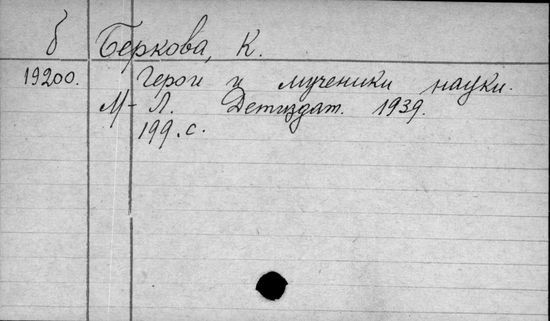 б Беркова, К.
19200. Герои и мученики науки.
М-Л. Детиздат. 1939.
199.с.